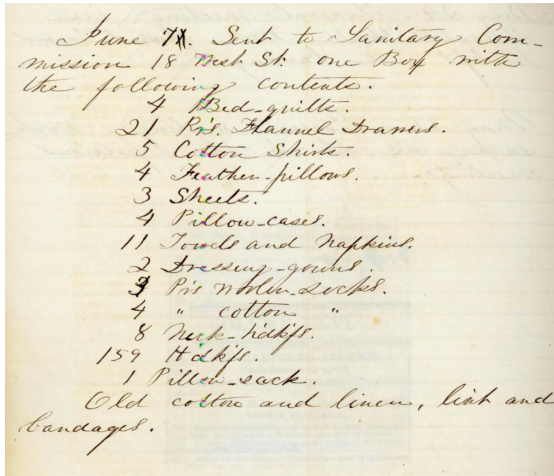 June 7. Sent to Sanitary Com-
mission 18 West St. one Box with
the following contents.
4 Bed-quilts.
21 Prs. Flannel Drawers.
5 Cotton Shirts.
4 Feather-pillows.
3 Sheets.
4 Pillow-cases.
11 Towels and Napkins.
2 Dressing-gowns.
Prs Woolen-socks.
4 " cotton "
8 Neck-hdkfs.
159 Hdkfs.
1 Pillow-sack.
Old cotton and linen, lint and
bandages.